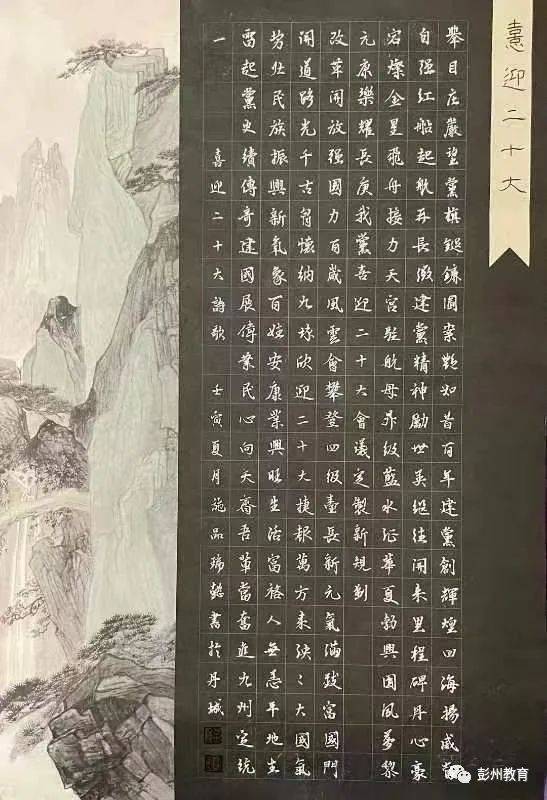 憙迎二十大
舉目庄嚴望黨旗鎚鐮圖案艷如昔百年建黨創輝煌四海揚威
自强紅船起航再長徵建黨精神勵世英繼往開來里程碑丹心豪
容燦金星飛舟接力天宮駐航母升級藍水征華夏勃興國風夢黎
元康樂耀長庚我黨喜迎二十大會議定製新規劃
改革開放强國力百歲風雲會攀登四級臺長新元氣滿富國門
開道路光千古胸懷納九垓欣迎二十大捷報萬方來泱〻大國氣
勢壯民族振興新氣象百姓安康業興旺生活富裕人無恙平地
雷起黨史續傳奇建國展偉業民心向天齊吾輩當奮進九州定統
一 喜迎二十大詩歌 壬寅夏月施品瑞書於丹城
彭州教育